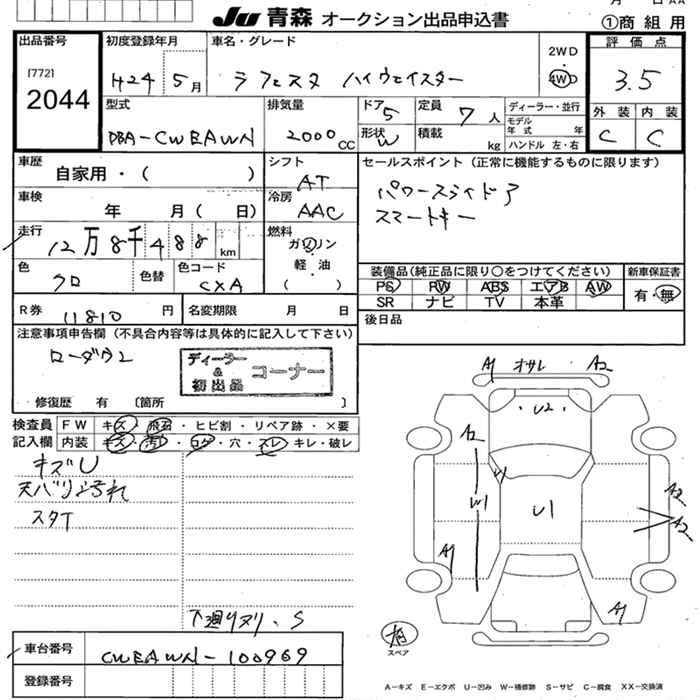 Ju 青森 オークション出品申込書
①商 組 用
出品番号
[772]
2044
初度登録年月
H24 5月
車名・グレード
ラフェスタ ハイウェイスター
2WD
4WD
評価点
3.5
外装 内装
C C
型式
DBA-CWEAWN
排気量
2000 CC
ドア
5
定員
7 人
形状
W
積載
kg
ディーラー・並行
モデル
年式 年
ハンドル 左・右
車歴
自家用・( )
シフト
AT
車検
年 月( 日)
冷房
AAC
走行
12万8千488 km
燃料
ガソリン
・
軽油
( )
色
クロ
色替
色コード
CXA
セールスポイント(正常に機能するものに限ります)
パワースライドア
スマートキー
装備品(純正品に限り○をつけてください)
PS PW ABS エアB AW
SR ナビ TV 本革
新車保証書
有・無
R券
11810 円
名変期限 月 日
後日品
注意事項申告欄(不具合内容等は具体的に記入して下さい)
ローダウン
ディーラー
&
初出品
コーナー
修復歴 有 〔箇所 〕
検査員
記入欄
FW キズ・飛石・ヒビ割・リペア跡・×要
内装 キズ・汚・コゲ・穴・スレ・キレ・破レ
キズU
天バリ汚れ
スタT
下廻りヌリ、S
A1 オサレ A2
U2
A2
W1
U1
W1
A1
A2
A2
A1
スペア
車台番号
CWEAWN-100969
登録番号
A-キズ E-エクボ U-凹み W-補修跡 S-サビ C-腐食 XX-交換済